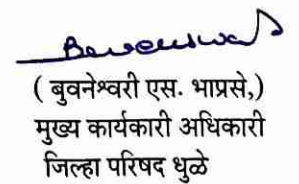 ( बुवनेश्वरी एस. भाप्रसे,)
मुख्य कार्यकारी अधिकारी
जिल्हा परिषद धुळे